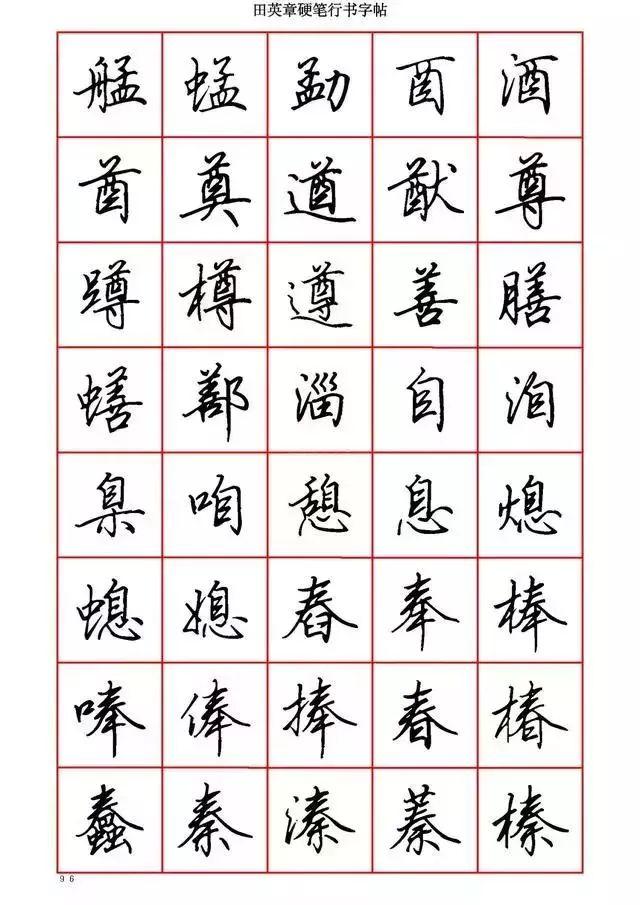 田英章硬笔行书字帖
艋蜢勐酉酒
酋奠遒猷尊
蹲樽遵善膳
蟮鄯淄自洎
臬咱憩息熄
螅媳舂奉棒
唪俸捧春椿
蠢秦溱蓁榛
96